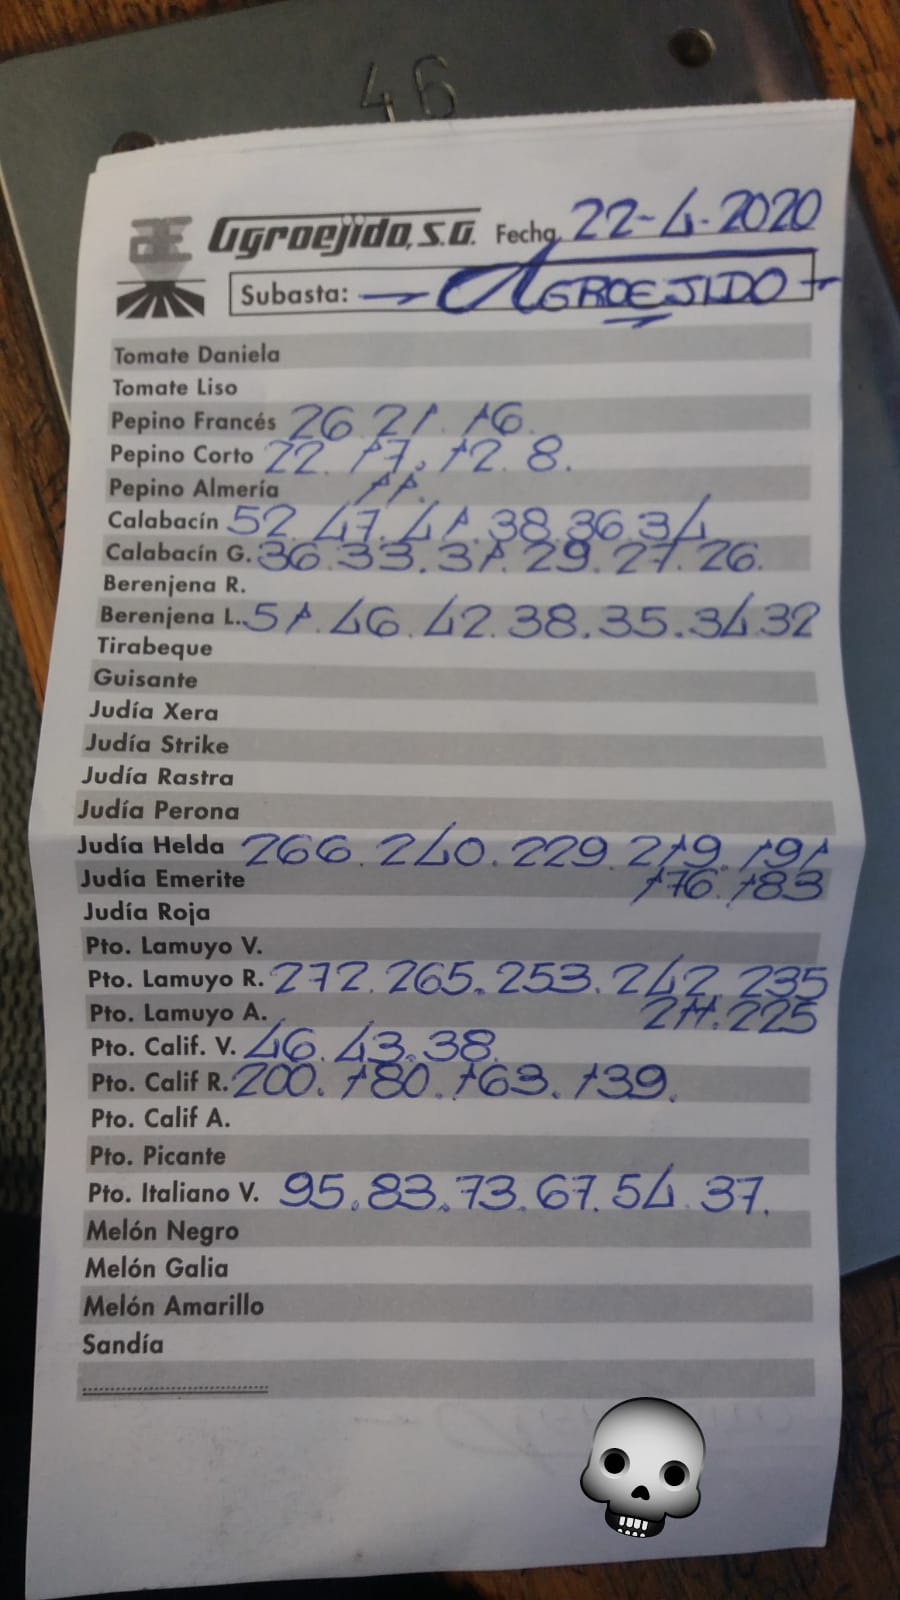 46
Agroejido, S.A. Fecha 22-4-2020
Subasta: — AGROEJIDO —
Tomate Daniela
Tomate Liso
Pepino Francés 26 21. 16.
Pepino Corto 22. 17. 12. 8.
Pepino Almería 11.
Calabacín 52. 47. 41. 38. 36. 34
Calabacín G. 36. 33. 31. 29. 27. 26.
Berenjena R.
Berenjena L. 51. 46. 42. 38. 35. 34 32
Tirabeque
Guisante
Judía Xera
Judía Strike
Judía Rastra
Judía Perona
Judía Helda 266. 240. 229. 219. 191
Judía Emerite 176. 183
Judía Roja
Pto. Lamuyo V.
Pto. Lamuyo R. 272. 265. 253. 242. 235
Pto. Lamuyo A. 211. 225
Pto. Calif. V. 46. 43. 38.
Pto. Calif R. 200. 180. 163. 139.
Pto. Calif A.
Pto. Picante
Pto. Italiano V. 95. 83. 73. 67. 54. 37.
Melón Negro
Melón Galia
Melón Amarillo
Sandía